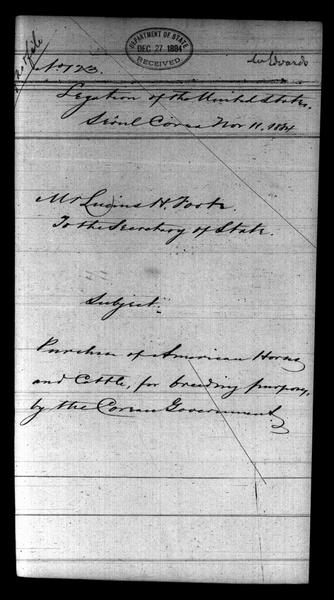 & file
DEPARTMENT OF STATE
DEC 27 1884
RECEIVED
No 123.
Legation of the United States.
Séoul Corea Nov 11, 1884
Mr Lucius H. Foote
To the Secretary of State.
Subject.
Purchase of American Horses
and Cattle, for breeding purposes,
by the Corean Government.